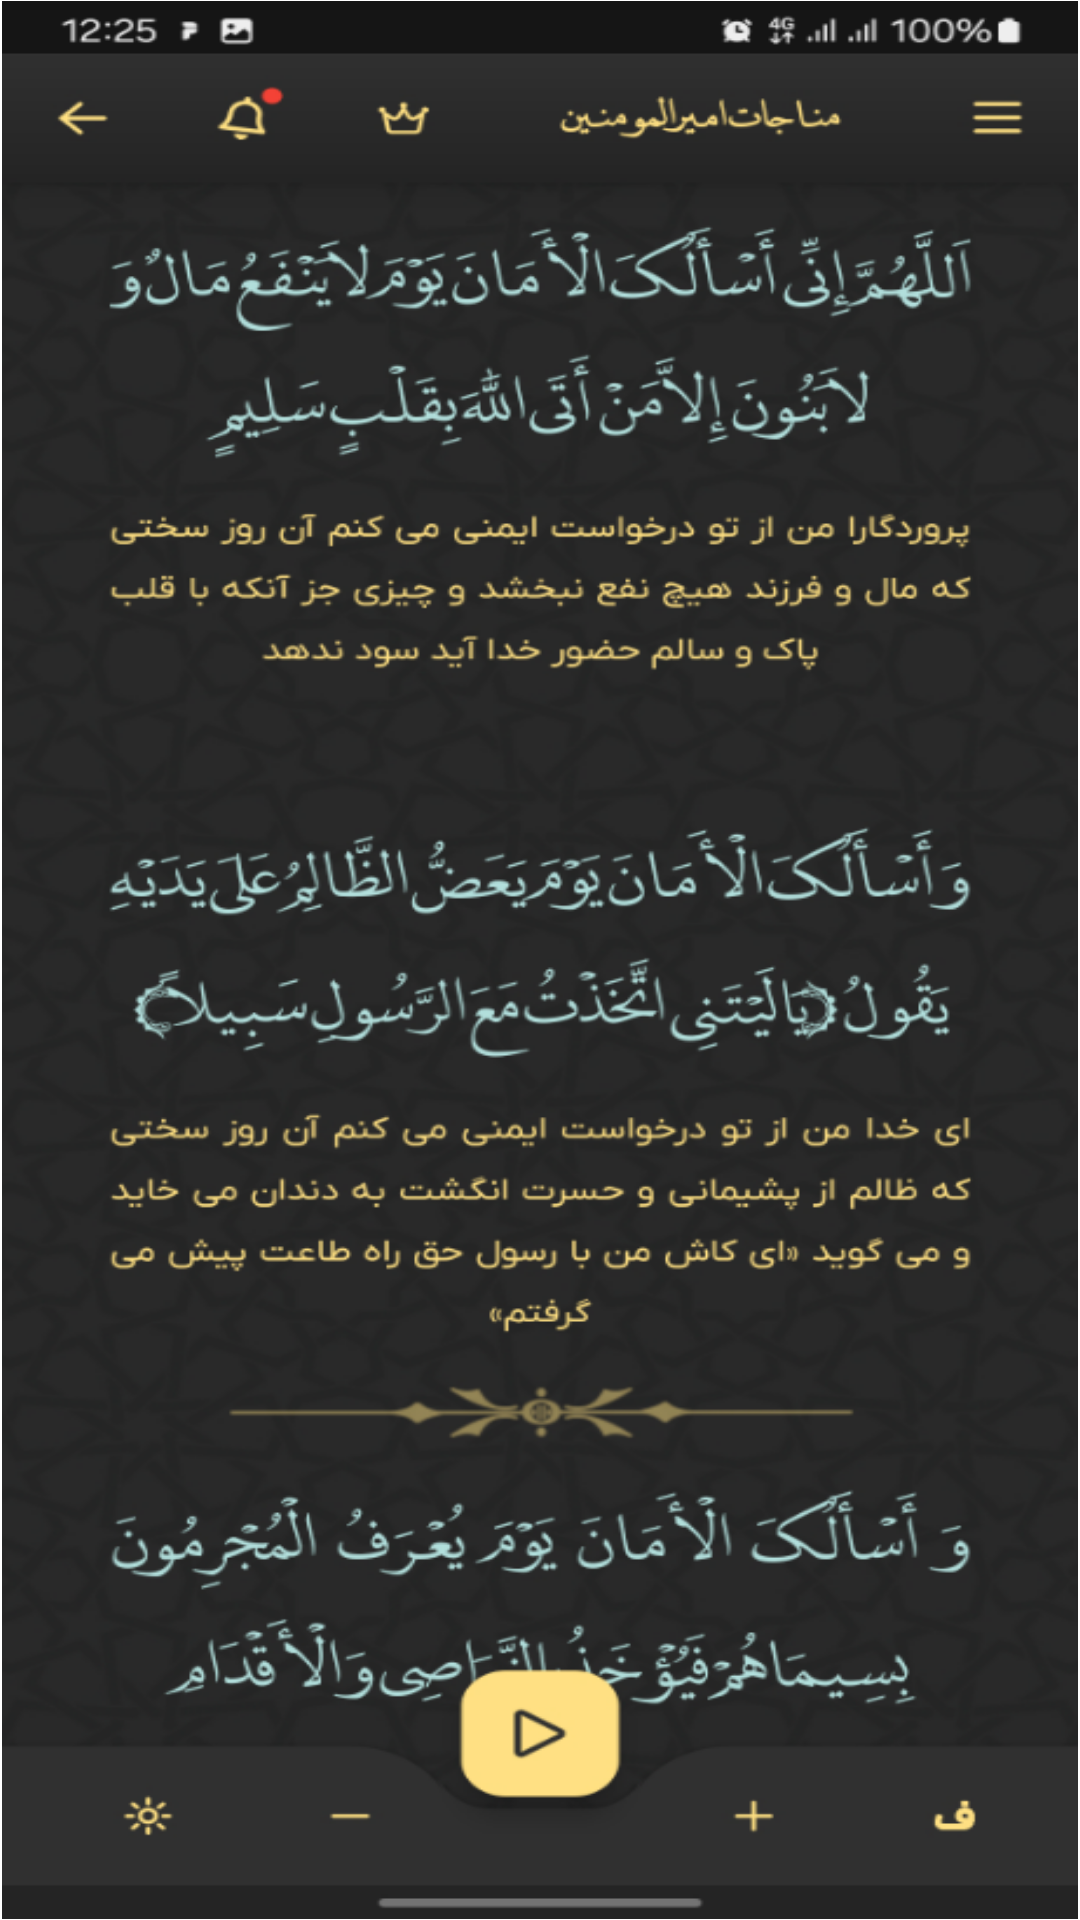 12:25
4G
100%
مناجات امیرالمومنین
اَللَّهُمَّ إِنِّی أَسْأَلُکَ الْأَمَانَ یَوْمَ لاَ یَنْفَعُ مَالٌ وَ
لاَ بَنُونَ إِلاَّ مَنْ أَتَی اللّٰهَ بِقَلْبٍ سَلِیمٍ
پروردگارا من از تو درخواست ایمنی می کنم آن روز سختی
که مال و فرزند هیچ نفع نبخشد و چیزی جز آنکه با قلب
پاک و سالم حضور خدا آید سود ندهد
وَ أَسْأَلُکَ الْأَمَانَ یَوْمَ یَعَضُّ الظَّالِمُ عَلَی یَدَیْهِ
یَقُولُ ﴿یَا لَیْتَنِی اتَّخَذْتُ مَعَ الرَّسُولِ سَبِیلاً﴾
ای خدا من از تو درخواست ایمنی می کنم آن روز سختی
که ظالم از پشیمانی و حسرت انگشت به دندان می خاید
و می گوید «ای کاش من با رسول حق راه طاعت پیش می
گرفتم»
وَ أَسْأَلُکَ الْأَمَانَ یَوْمَ یُعْرَفُ الْمُجْرِمُونَ
بِسِیمَاهُمْ فَیُؤْخَذُ وَ الْأَقْدَامِ
ف